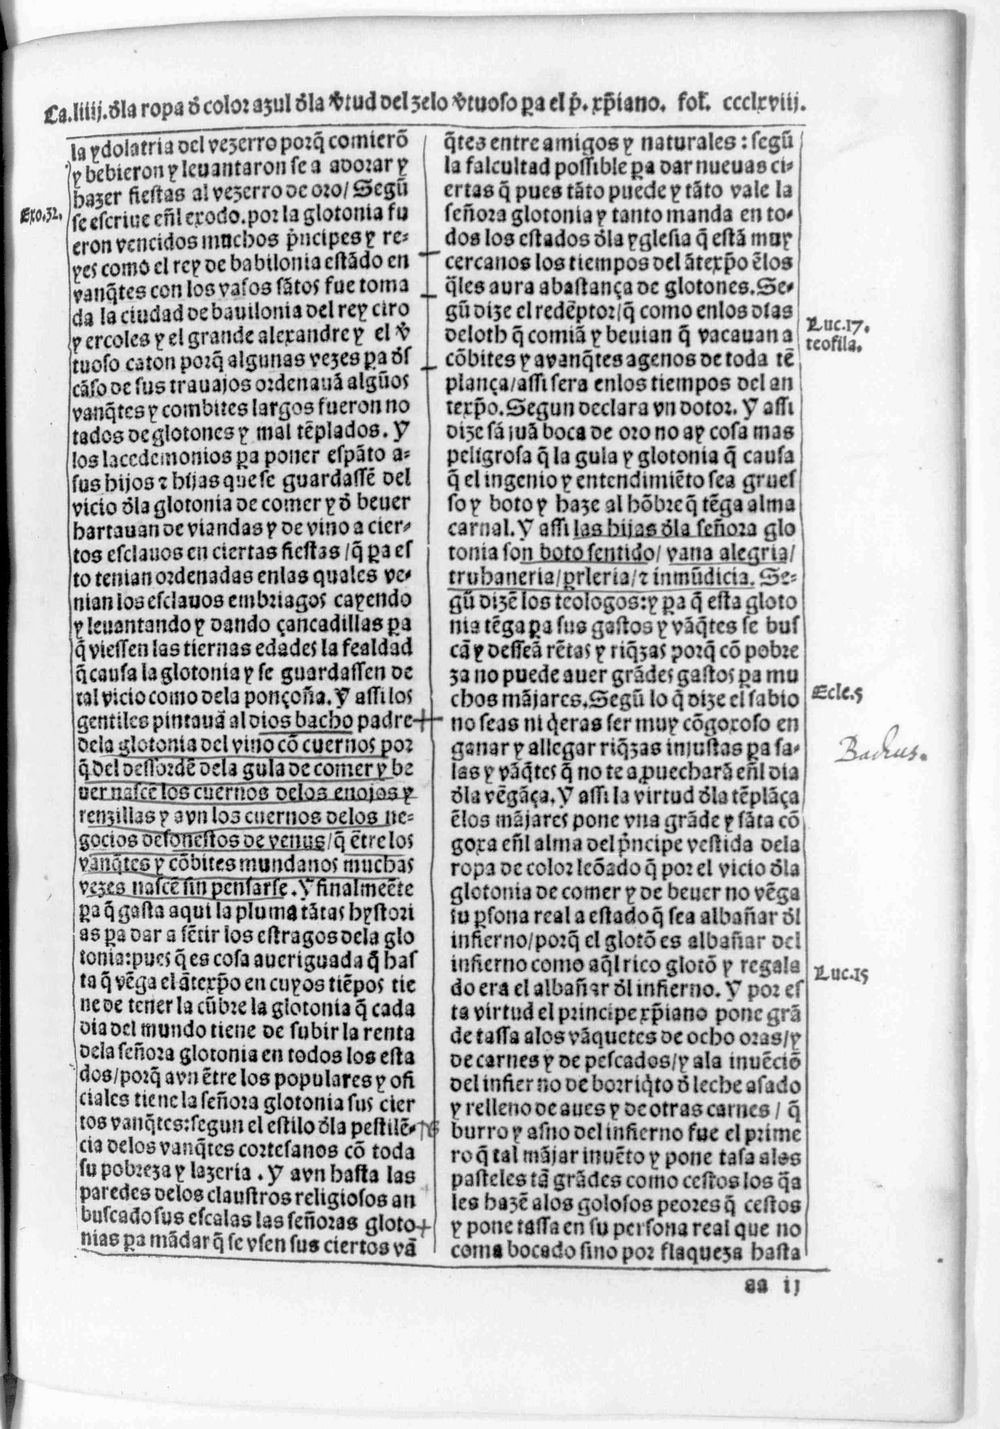 Ca.liiij. đla ropa đ color azul đla v̄tud del zelo v̄tuoso pa el p̄. xp̄iano. fol. ccclxviij.
la ydolatria del vezerro porq̄ comierō
y bebieron y leuantaron se a adorar y
hazer fiestas al vezerro de oro/ Segū
Exo.32.
se escriue eñl exodo. por la glotonia fu
eron vencidos muchos p̄ncipes y re-
yes como el rey de babilonia estādo en
vanq̄tes con los vasos sātos fue toma
da la ciudad de bauilonia del rey ciro
y ercoles y el grande alexandre y el v̄
tuoso caton porq̄ algunas vezes pa đs
cāso de sus trauajos ordenauā algūos
vanq̄tes y combites largos fueron no
tados de glotones y mal tēplados. Y
los lacedemonios pa poner espāto a-
sus hijos ⁊ hijas que se guardassē del
vicio đla glotonia de comer y đ beuer
hartauan de viandas y de vino a cier-
tos esclauos en ciertas fiestas/q̄ pa es
to tenian ordenadas enlas quales ve-
nian los esclauos embriagos cayendo
y leuantando y dando çancadillas pa
q̄ viessen las tiernas edades la fealdad
q̄ causa la glotonia y se guardassen de
tal vicio como dela ponçoña. Y assi los
gentiles pintauā al dios bacho padre
dela glotonia del vino cō cuernos por
q̄ del dessordē dela gula de comer y be
uer nascē los cuernos delos enojos y
renzillas y avn los cuernos delos ne-
gocios desonestos de venus/q̄ ētre los
vanq̄tes y cōbites mundanos muchas
vezes nascē sin pensarse. Y finalmēte
pa q̄ gasta aqui la pluma tātas hystori
as pa dar a sētir los estragos dela glo
tonia: pues q̄ es cosa aueriguada q̄ has
ta q̄ vēga el ātexp̄o en cuyos tiēpos tie
ne de tener la cūbre la glotonia q̄ cada
dia del mundo tiene de subir la renta
dela señora glotonia en todos los esta
dos/porq̄ avn ētre los populares y ofi
ciales tiene la señora glotonia sus cier
tos vanq̄tes: segun el estilo đla pestilē-
cia delos vanq̄tes cortesanos cō toda
su pobreza y lazeria. Y avn hasta las
paredes delos claustros religiosos an
buscado sus escalas las señoras gloto
nias pa mādar q̄ se vsen sus ciertos vā
q̄tes entre amigos y naturales: segū
la falcultad possible pa dar nueuas ci-
ertas q̄ pues tāto puede y tāto vale la
señora glotonia y tanto manda en to-
dos los estados đla yglesia q̄ estā muy
cercanos los tiempos del ātexp̄o ēlos
q̄les aura abastança de glotones. Se-
gū dize el redēptor/q̄ como enlos dias
Luc.17.
teofila.
deloth q̄ comiā y beuian q̄ vacauan a
cōbites y avanq̄tes agenos de toda tē
plança/assi sera enlos tiempos del an
texp̄o. Segun declara vn dotor. Y assi
dize sā juā boca de oro no ay cosa mas
peligrosa q̄ la gula y glotonia q̄ causa
q̄ el ingenio y entendimiēto sea grues
so y boto y haze al hōbre q̄ tēga alma
carnal. Y assi las hijas đla señora glo
tonia son boto sentido/ vana alegria/
truhaneria/ prleria/ ⁊ inmūdicia. Se-
gū dizē los teologos: y pa q̄ esta gloto
nia tēga pa sus gastos y vāq̄tes se bus
cā y desseā rētas y riq̄zas porq̄ cō pobre
za no puede auer grādes gastos pa mu
chos mājares. Segū lo q̄ dize el sabio
Ecle.5
no seas ni q̄eras ser muy cōgoxoso en
ganar y allegar riq̄zas injustas pa sa-
Bachus.
las y vāq̄tes q̄ no te apuecharā eñl dia
đla vēgāça. Y assi la virtud đla tēplāça
ēlos mājares pone vna grāde y sāta cō
goxa eñl alma del p̄ncipe vestida dela
ropa de color leōado q̄ por el vicio đla
glotonia de comer y de beuer no vēga
su psona real a estado q̄ sea albañar đl
infierno/porq̄ el glotō es albañar del
infierno como aq̄l rico glotō y regala
Luc.15
do era el albañar đl infierno. Y por es
ta virtud el principe xp̄iano pone grā
de tassa alos vāquetes de ocho oras/y
de carnes y de pescados/y ala inuēciō
del infierno de borriq̄to đ leche asado
y relleno de aues y de otras carnes/ q̄
burro y asno del infierno fue el prime
ro q̄ tal mājar inuēto y pone tasa alos
pasteles tā grādes como cestos los q̄a
les hazē alos golosos peores q̄ cestos
y pone tassa en su persona real que no
coma bocado sino por flaqueza hasta
aa ij